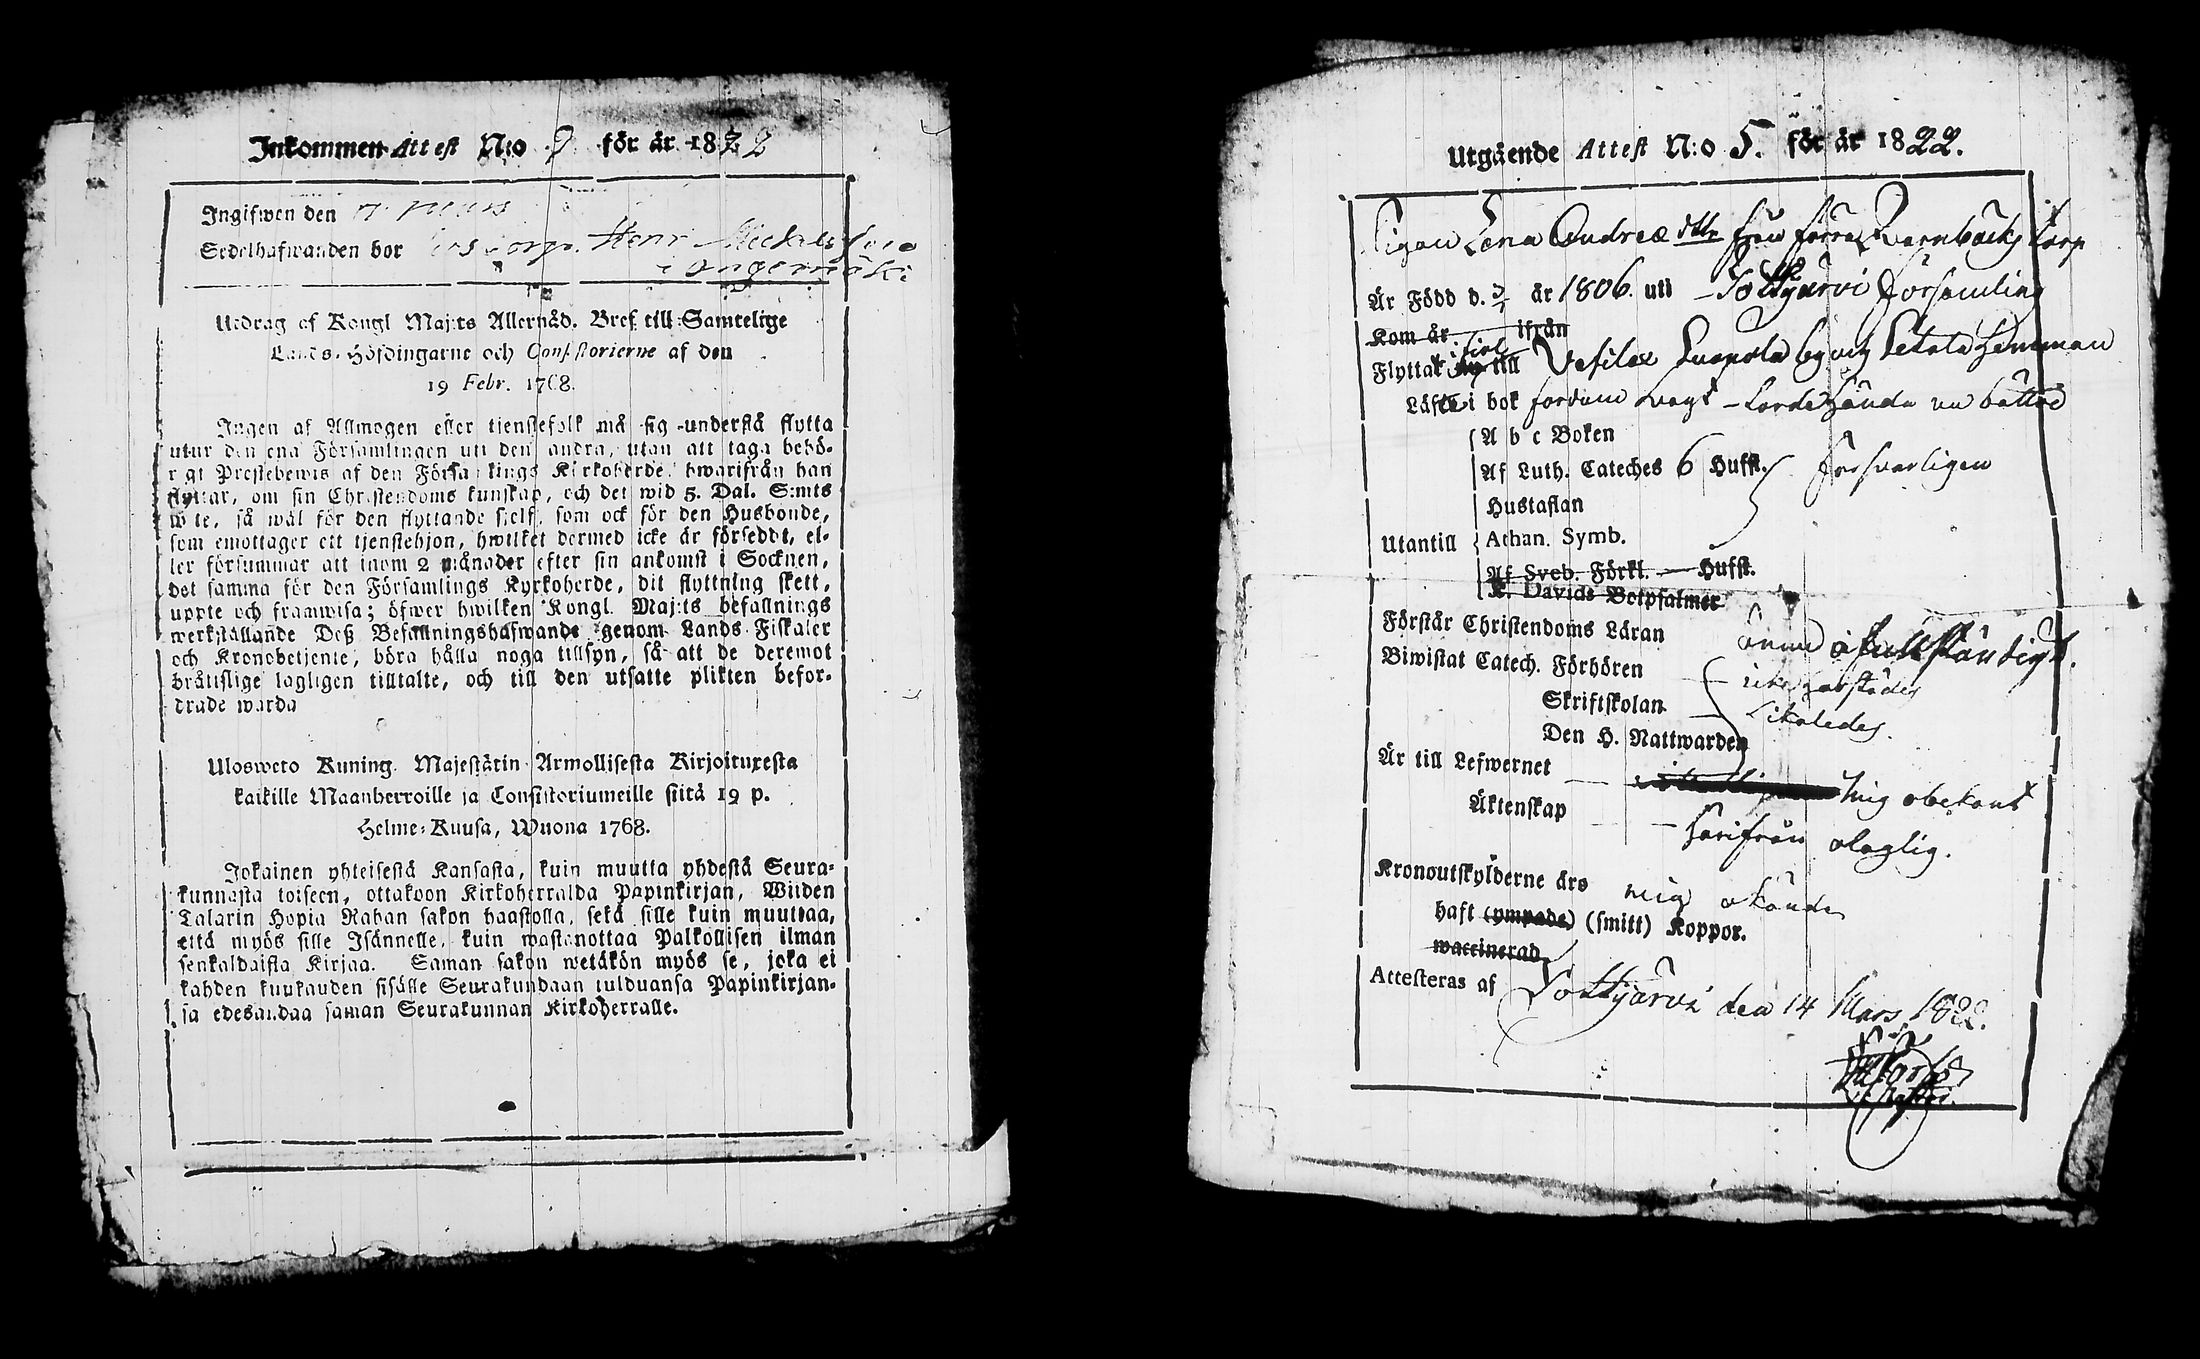 Inkommen Attest N:o 9 för år 1822
Ingifwen den
Sedelhafwanden bor Torp. Henr Mickelsson
i Ingermäki
Utdrag af Kongl Maj:ts Allernåd. Bref till Samtelige
Lands-Höfdingarne och Consistorierne af den
19 Febr. 1768.
Ingen af Allmogen eller tjenstefolk må sig understå flytta
utur den ena Församlingen uti den andra, utan att taga behö-
rigt Prestebewis af den Församlings Kirkoherde, hwarifrån han
flyttar, om sin Christendoms kunskap, och det wid 5. Dal. S:mts
wite, så wäl för den flyttande sielf, som ock för den Husbonde,
som emottager ett tjenstehjon, hwilket dermed icke är förseddt, el-
ler försummar att inom 2 månader efter sin ankomst i Socknen,
det samma för den Församlings Kyrkoherde, dit flyttning skett,
uppte och framwisa; öfwer hwilken Kongl. Maj:ts befallnings
werkställande Deß Befallningshafwande genom Lands Fiskaler
och Kronobetjente, böra hålla noga tillsyn, så att de deremot
bråttslige lagligen tilltalte, och till den utsatte plikten befor-
drade warda
Ulosweto Kuning. Majestätin Armollisesta Kirjoituxesta
kaikille Maanherroille ja Consistoriumeille siitä 19 p.
Helme-Kuusa, Wuona 1768.
Jokainen yhteisestä Kansasta, kuin muutta yhdestä Seura-
kunnasta toiseen, ottakoon Kirkoherralda Papinkirjan, Wiiden
Talarin Hopia Rahan sakon haastolla, sekä sille kuin muuttaa,
että myös sille Isännelle, kuin wastanottaa Palkollisen ilman
senkaldaista Kirjaa. Saman sakon wetäkön myös se, joka ei
kahden kuukauden sisälle Seurakundaan tulduansa Papinkirjan-
sa edesandaa saman Seurakunnan Kirkoherralle.
Utgående Attest N:o 5. för år 1822.
Pigan Lena Andreæ dttr från förra Qwarnbacks Torp
Är Född d. år 1806. uti Tottijärvi församling
Kom år ifrån
Flyttat till Vesilax by Hemman
Läste i bok fordom svagt - torde hända nu bättre
A b c Boken
Af Luth. Cateches 6 Hufst. försvarligen
Hustaflan
Utantill Athan. Symb.
Af Sveb. Förkl. Hufst.
K. Davids Botpsalmer
Förstår Christendoms Läran ännu ofullständigt.
Biwistat Catech. Förhören
Skriftskolan likaledes.
Den H. Nattwarden
Är till Lefwernet mig obekant
Äktenskap härifrån olaglig.
Kronoutskylderne äro mig okände
haft (ympade) (smitt) Koppor.
waccinerad
Attesteras af Tottijärvi den 14 Mars 1822.